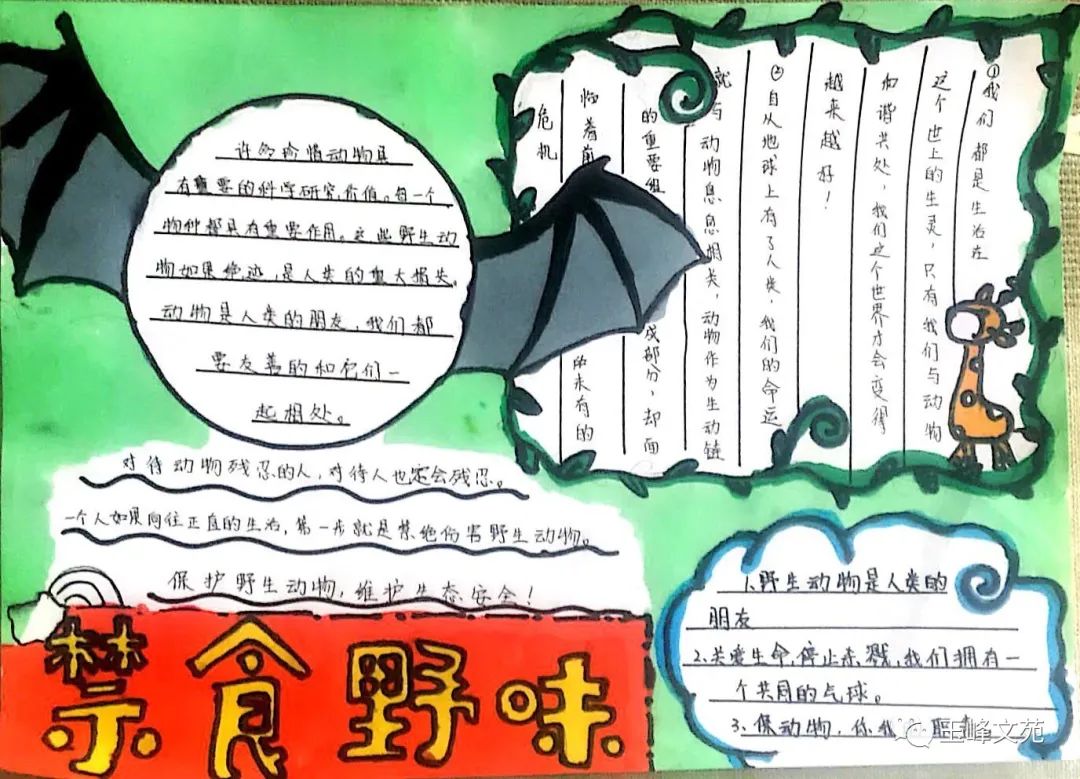 许多珍惜动物具
有重要的科学研究价值。每一个
物种都具有重要作用。这些野生动
物如果绝迹,是人类的重大损失。
动物是人类的朋友,我们都
要友善的和它们一
起相处。
①我们都是生活在
这个世上的生灵,只有我们与动物
和谐共处,我们这个世界才会变得
越来越好!
②自从地球上有了人类,我们的命运
就与动物息息相关,动物作为生动链
的重要组成部分,却面
临着前所未有的
危机
对待动物残忍的人,对待人也定会残忍。
一个人如果向往正直的生活,第一步就是禁绝伤害野生动物。
保护野生动物,维护生态安全!
禁食野味
1.野生动物是人类的
朋友
2.关爱生命,停止杀戮,我们拥有一
个共同的气球。
3.保动物,你我
玉峰文苑